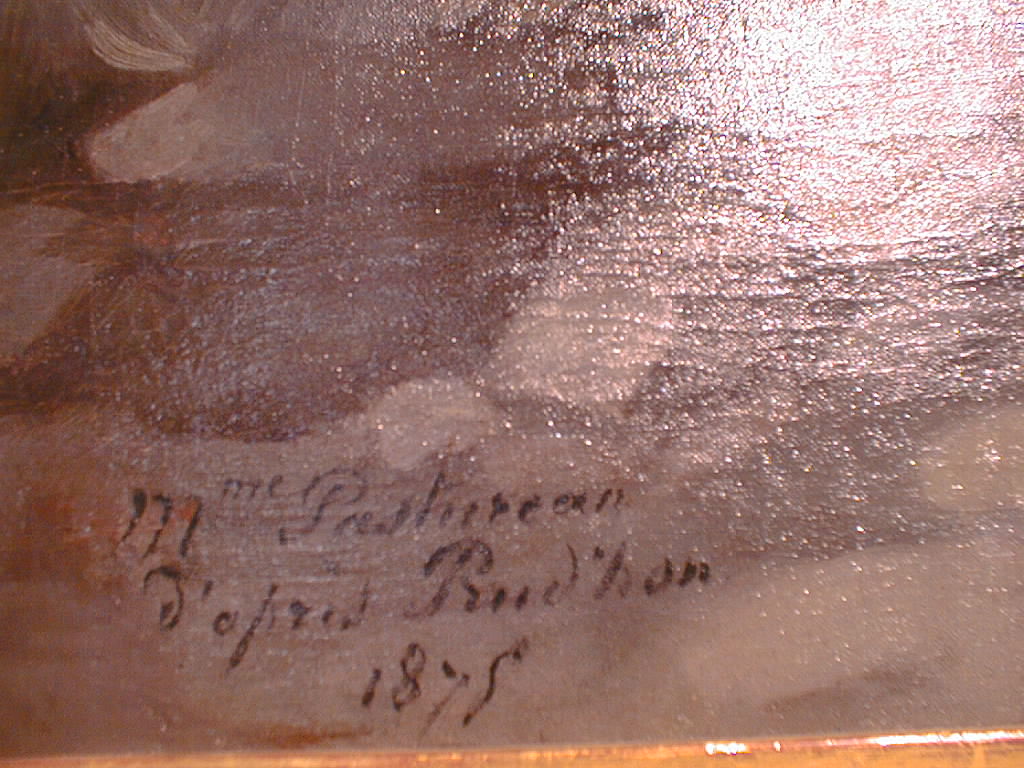 Mme Pastureau
d'après Prud'hon
1875